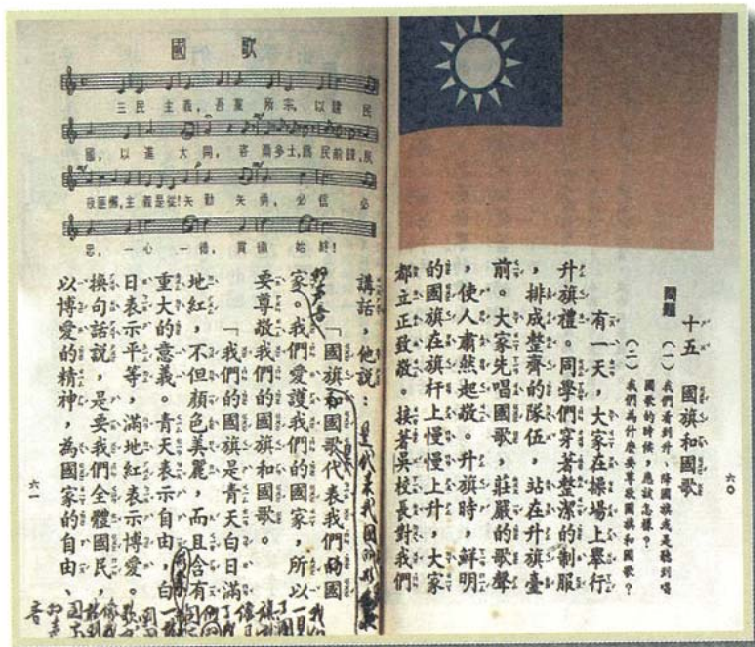 六〇
十五 國旗和國歌
問題 (一) 我們看到升、降國旗或是聽到唱
國歌的時候，應該怎樣？
(二) 我們為什麼要尊敬國旗和國歌？
有一天，大家在操場上舉行
升旗禮。同學們穿著整潔的制服
，排成整齊的隊伍，站在升旗臺
前。大家先唱國歌，莊嚴的歌聲
，使人肅然起敬。升旗時，鮮明
的國旗在旗杆上慢慢上升，大家
都立正致敬。接著吳校長對我們
國歌
三民主義，吾黨所宗，以建民
國，以進大同，咨爾多士，為民前鋒，夙
夜匪懈，主義是從！矢勤矢勇，必信必
忠，一心一德，貫徹始終！
講話，他說：
是代表我國的形
「國旗和國歌代表我們的國
家。我們愛護我們的國家，所以
要尊敬我們的國旗和國歌。
「我們的國旗是青天白日滿
地紅，不但顏色美麗，而且含有
重大的意義。青天表示自由，白
日表示平等，滿地紅表示博愛。
換句話說，是要我們全體國民，
以博愛的精神，為國家的自由、
六一